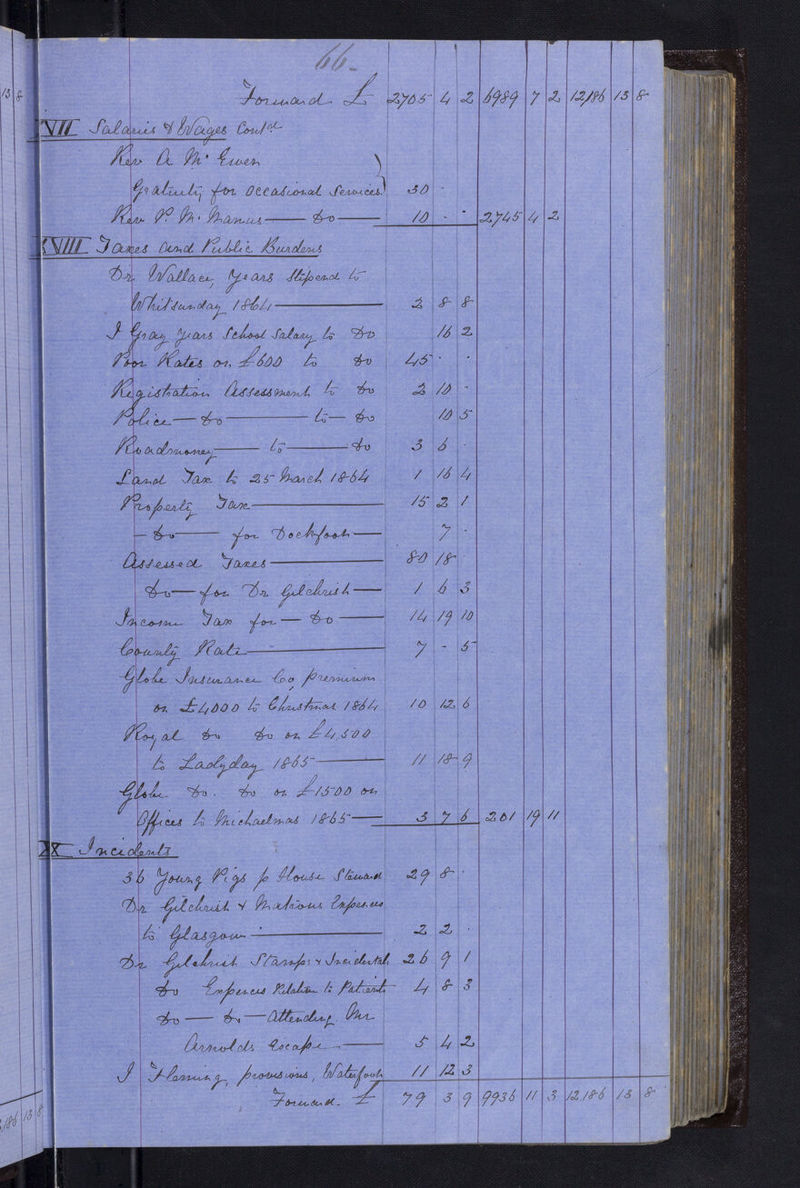 66.
Forward £ 2705 4 2 6989 7 2 12186 13 8
XVII Salaries & Wages Contd
Rev A Mc Ewen
Gratuity for Occasional Services 30 -
Rev P. Mc Manus — Do — 10 - - 2745 4 2
XVIII Taxes and Public Burdens
Dr Wallace, Years Stipend to
Whitsunday 1864 — 2 8 8
J Gray Years School Salary to Do 16 2
Poor Rates on £600 to Do 45 - -
Registration Assessment to Do 2 10 -
Police — Do — to — Do 10 5
Roadmoney — to — Do 3 6 -
Land Tax to 25 March 1864 1 16 4
Property Tax — 15 2 1
— Do — for Dockfoot — 7 -
Assessed Taxes — 80 18 -
Do — for Dr Gilchrist — 1 6 3
Income Tax for — Do — 14 19 10
County Rate — 7 - 5
Globe Insurance Co premium
on £4000 to Christmas 1864 10 12 6
Royal Do Do on £4,500
to Ladyday 1865 — 11 18 9
Globe Do. Do on £1500 on
Offices to Michaelmas 1865 — 3 7 6 201 19 11
XX Incidents
36 Young Pigs p House Steward 29 8 -
Dr Gilchrist & Matrons Expences
to Glasgow — 2 2 -
Dr Gilchrist Stamps & Incidentals 26 9 1
Do Expences Relative to Patients 4 8 3
Do — Do — Attending Mr
Arnolds Escape — 5 4 2
J Fleming, provisions, Waterfoot 11 12 3
Forward. £ 79 3 9 9936 11 3 12,186 13 8
13 8
186 13 8